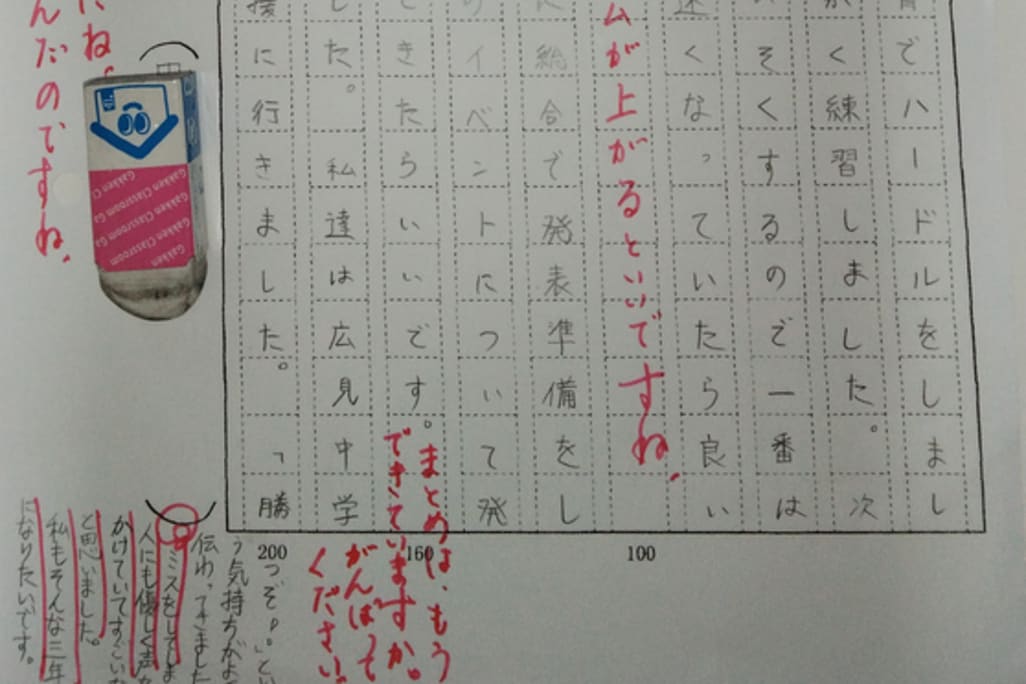 でハードルをしまし
く練習しました。次
そくするのでー番は
くなっていたら良い
ムが上がるといいですね。
総合で発表準備をし
イベントについて発
きたらいいです。
まとめは、もう
できていますか。
がんばって
ください
た。私達は広見中学
に行きました。「勝
100
160
200
つぞ。」とい
う気持ちがよ
伝わってきました
ミスをしてしま
人にも優しく声を
かけていてすごいな
と思いました。
私もそんな三年
になりたいです。
たね。
んだのですね。
Gakken Classroom